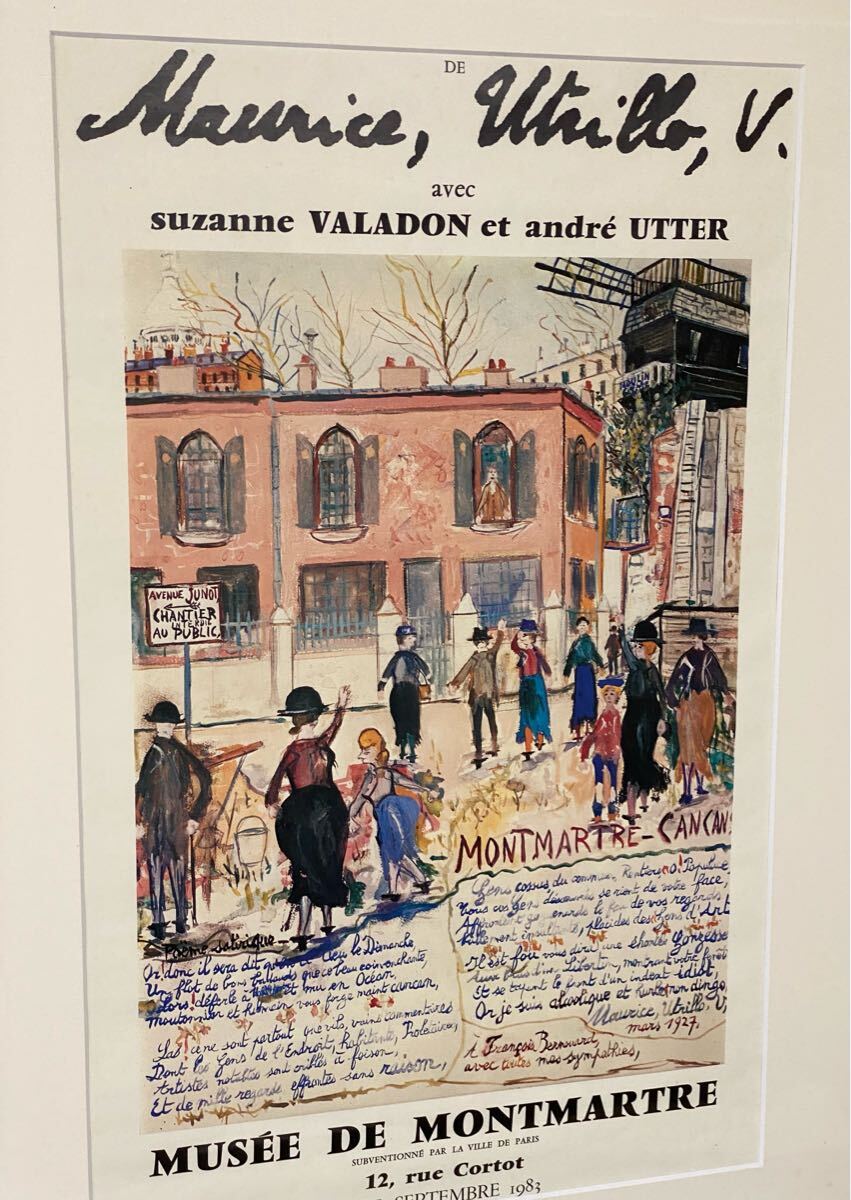 DE
Maurice, Utrillo, V.
avec
suzanne VALADON et andré UTTER
MOULIN
AVENUE JUNOT
CHANTIER
INTERDIT
AU PUBLIC
MONTMARTRE-CANCANS
Gens cossus, du commun, Rentiers, O! Populace
Tous ces gens
se rient de votre face,
Affrontent
le feu de vos regards
insultants, placides des Gens d'Art
Il est fou vous dira une éhontée
Aux plus d'un Libertin, montrant votre
Et se tapant le front d'un indent idiot,
Or je suis alcoolique et
non dingo,
Maurice, Utrillo, V,
mars 1927,
Poème satirique
Or! donc il sera dit
le Dimanche,
Un flot de bons
que ce beau coin
Alors! déferle à
et mu en Océan,
Moutonnier et humain vous forge maint cancan,
Las! ce ne sont partout que vils, vains commentaires
Dont les Gens de l'Endroit, habitants, Prolétaires,
Artistes notables sont criblés à foison,
Et de mille regards effrontés sans raison,
A François Bernouard,
avec toutes mes sympathies,
MUSÉE DE MONTMARTRE
SUBVENTIONNÉ PAR LA VILLE DE PARIS
12, rue Cortot
SEPTEMBRE 1983